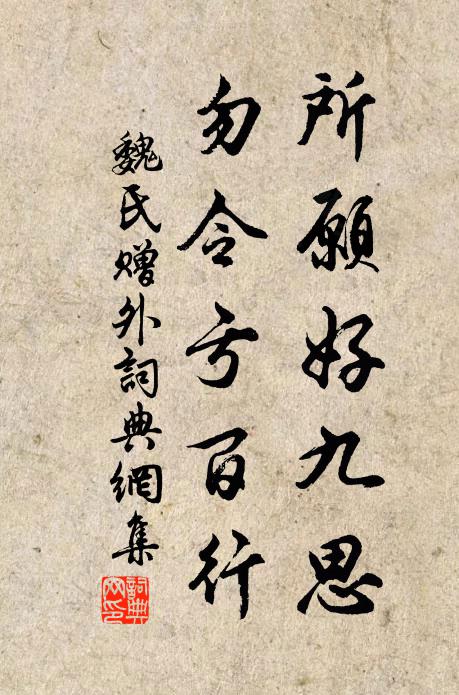 所願好九思
勿令亏百行
魏氏赠外詞典網集
詞典网印